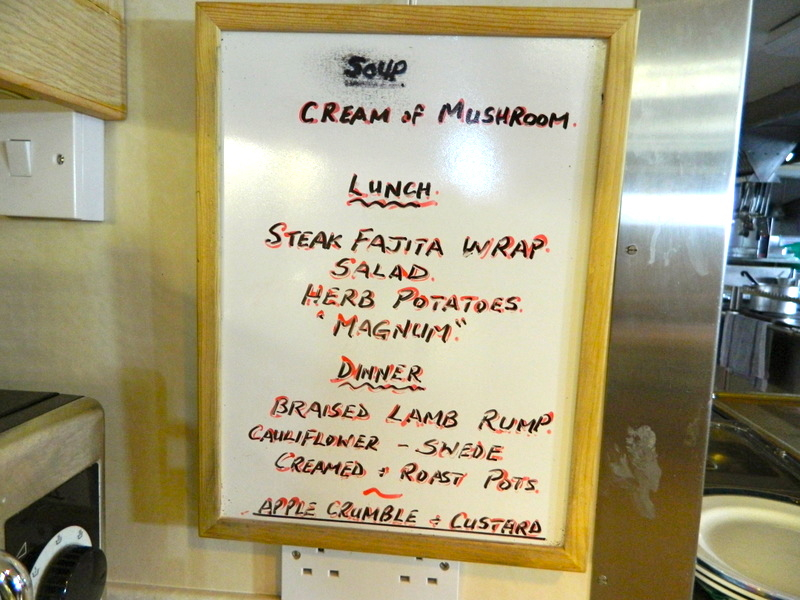 SOUP
CREAM OF MUSHROOM.
LUNCH.
STEAK FAJITA WRAP.
SALAD.
HERB POTATOES.
"MAGNUM"
DINNER
BRAISED LAMB RUMP.
CAULIFLOWER - SWEDE
CREAMED & ROAST POTS.
~
APPLE CRUMBLE & CUSTARD